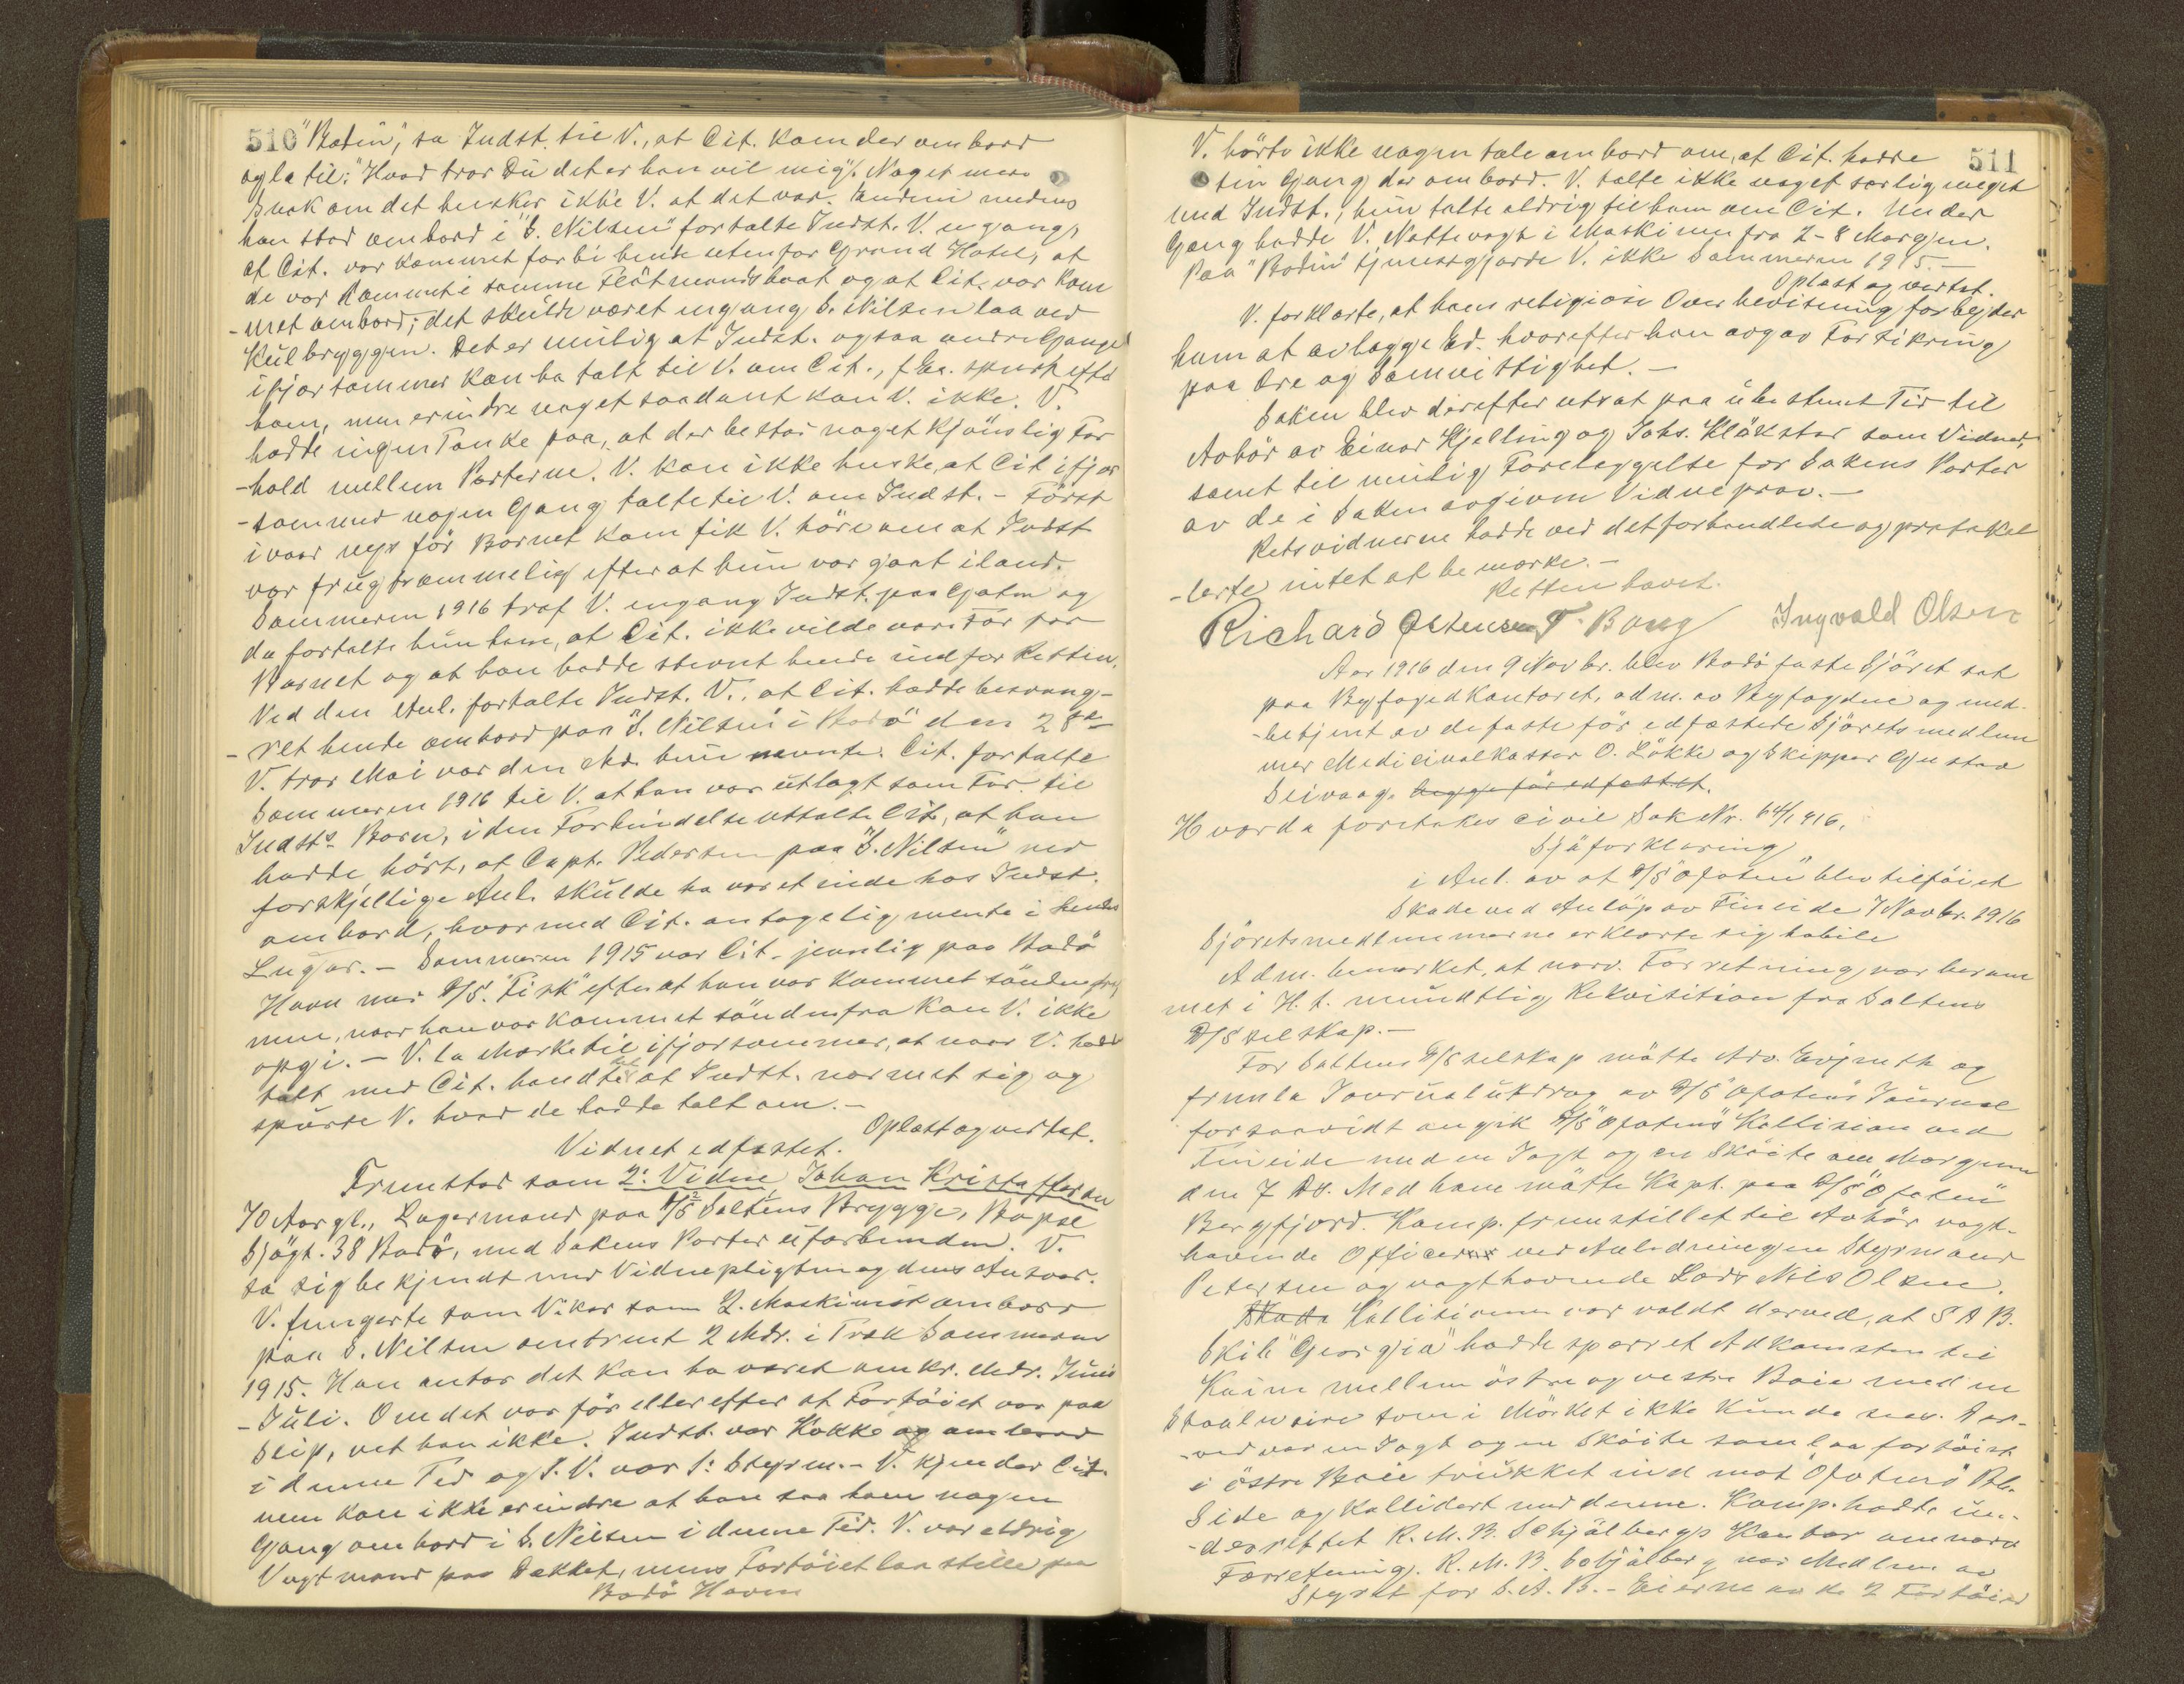 510 "Bodin", sa Indst. til V., at Cit. kom der ombord
og la til: "Hvad tror Du det er han vil mig". Noget mere
Snak om det husker ikke V. at det var. Endnu medens
han stod ombord i "S. Nilsen" fortalte Indst. V. engang,
at Cit. var kommet forbi hende utenfor Grand Hotel, at
de var kommet i samme Fløtmandsbaat og at Cit. var kom
-met ombord; det skulde været engang S. Nilsen laa ved
Kulbryggen. Det er mulig at Indst. ogsaa andre Gange
ifjorsommer kan ha talt til V. om Cit., f. Ex. spurt efter
ham, men erindre noget saadant kan V. ikke. V.
hadde ingen Tanke paa, at der bestod noget kjønslig For
-hold mellem Parterne. V. kan ikke huske, at Cit. ifjor
-sommer nogen Gang talte til V. om Indst. - Først
ivaar nys før Barnet kom fik V. høre om at Indst
var frugtsommelig efter at hun var gaat iland.
Sommeren 1916 traf V. engang Indst. paa Gaten og
da fortalte hun ham, at Cit. ikke vilde være Far for
Barnet og at han hadde stevnt hende ind for Retten.
Ved den Anl. fortalte Indst. V., at Cit. hadde besvang-
-ret hende ombord paa "S. Nilsen" i Bodø den 28de
V. tror Mai var den Md. hun nevnte. Cit. fortalte
Sommeren 1916 til V. at han var utlagt som Far til
Indsts Barn, i den Forbindelse uttalte Cit., at han
hadde hørt, at Capt. Pedersen paa "S. Nilsen" ved
forskjellige Anl. skulde ha været inde hos Indst.
ombord, hvormed Cit. antagelig mente i hendes
Lugar. - Sommeren 1915 var Cit. jevnlig paa Bodø
Havn med D/S. "Fisk" efterat han var kommet søndenfra
men, naar han var kommet søndenfra kan V. ikke
opgi. - V. la Merke til ifjorsommer, at naar V. hadde
talt med Cit. hændte det at Indst. nærmet sig og
spurte V. hvad de hadde talt om. -
Oplæst og vedtat.
Vidnet edfæstet.
Fremstod som 2: Vidne Johan Kristoffersen
70 Aar gl., Lagermand paa D/S Saltens Brygge, Bopæl
Sjøgt. 38 Bodø, med Sakens Parter uforbunden. V.
sa sig bekjendt med Vidnepligten og dens Ansvar.
V. fungerte som Vikar som 2. Maskinist ombord
paa S. Nilsen omtrent 2 Mdr. i Træk Sommeren
1915. Han antar det kan ha været omkr. Mdr. Juni
-Juli. Om det var før eller efter at Fartøiet var paa
Slip, vet han ikke. Indst. var Kokke og ombord
i denne Tid og S. V. var 1: Styrm. - V. kjender Cit.
men kan ikke erindre at han saa ham nogen
Gang ombord i S. Nilsen i denne Tid. V. var aldrig
Vagtmand paa Dækket, mens Fartøiet laa stille paa
Bodø Havn
511
V. hørte ikke nogen tale ombord om, at Cit. hadde
sin Gang der ombord. V. talte ikke noget særlig meget
med Indst.; hun talte aldrig til ham om Cit. Under
Gang hadde V. Nattevagt i Maskinen fra 2-8 Morgen.
Paa "Bodin" tjenestgjorde V. ikke Sommeren 1915. -
Oplæst og vedtat.
V. forklarte, at hans religiøse Overbevisning forbyder
ham at avlægge Ed. hvorefter han avgav Forsikring
paa Ære og Samvittighet. -
Saken blev derefter utsat paa ubestemt Tid til
Avhør av Einar Kjelling og Johs. Klækstad som Vidner,
samt til mulig Foreleggelse for Sakens Parter
av de i Saken avgivne Vidneprov. -
Retsvidnerne hadde ved det forhandlede og protokol
-lerte intet at bemerke. -
Retten hævet.
Richard Østensen F. Bang Ingvald Olsen
Aar 1916 den 9 Novbr. blev Bodø faste Sjøret sat
paa Byfogedkontoret, adm. av Byfogden og med-
-betjent av de faste før edfæstede Sjøretsmedlem
mer Medicinalkasser O. Løkke og Skipper Gustav
Seivaag. begge før edfæstet.
Hvorda foretokes civil Sak Nr. 64/1916.
Sjøforklaring
i Anl. av at D/S "Ofoten" blev tilføiet
Skade ved Anløp av Fineide 7 Novbr. 1916
Sjøretsmedlemmerne erklærte sig habile
Adm. bemerket, at nærv. Forretning var beram
met i H. t. mundtlig Rekvisition fra Saltens
D/Sselskap. -
For Saltens D/Sselskap møtte Adv. Evjenth og
fremla Journalutdrag av D/S "Ofoten"s Journal
forsaavidt angik D/S "Ofoten"s Kollision ved
Fineide med en Jagt og en Skøite om Morgenen
den 7 ds. Med ham møtte Kapt. paa D/S "Ofoten"
Bergfjord. Komp. fremstillet til Avhør vagt-
havende Officer ved Anledningen Styrmand
Petersen og vagthavende Lods Nils Olsen.
Skade Kollisionen var voldt derved, at S A B.
Skib "Georgia" hadde sperret Adkomsten til
Kaien mellem østre og vestre Boie med en
Staalwaire som i Mørket ikke kunde sees. Der-
-ved var en Jagt og en Skøite som laa fortøiet
i østre Boie trukket ind mot "Ofoten"s Bb.
Side og kollidert med denne. Komp. hadde un-
-derrettet R. M. B. Schjølbergs Kontor om nærv.
Forretning. R. M. B. Schjølberg var Medlem av
Styret for S. A. B. - Eierne av de 2 Fartøier